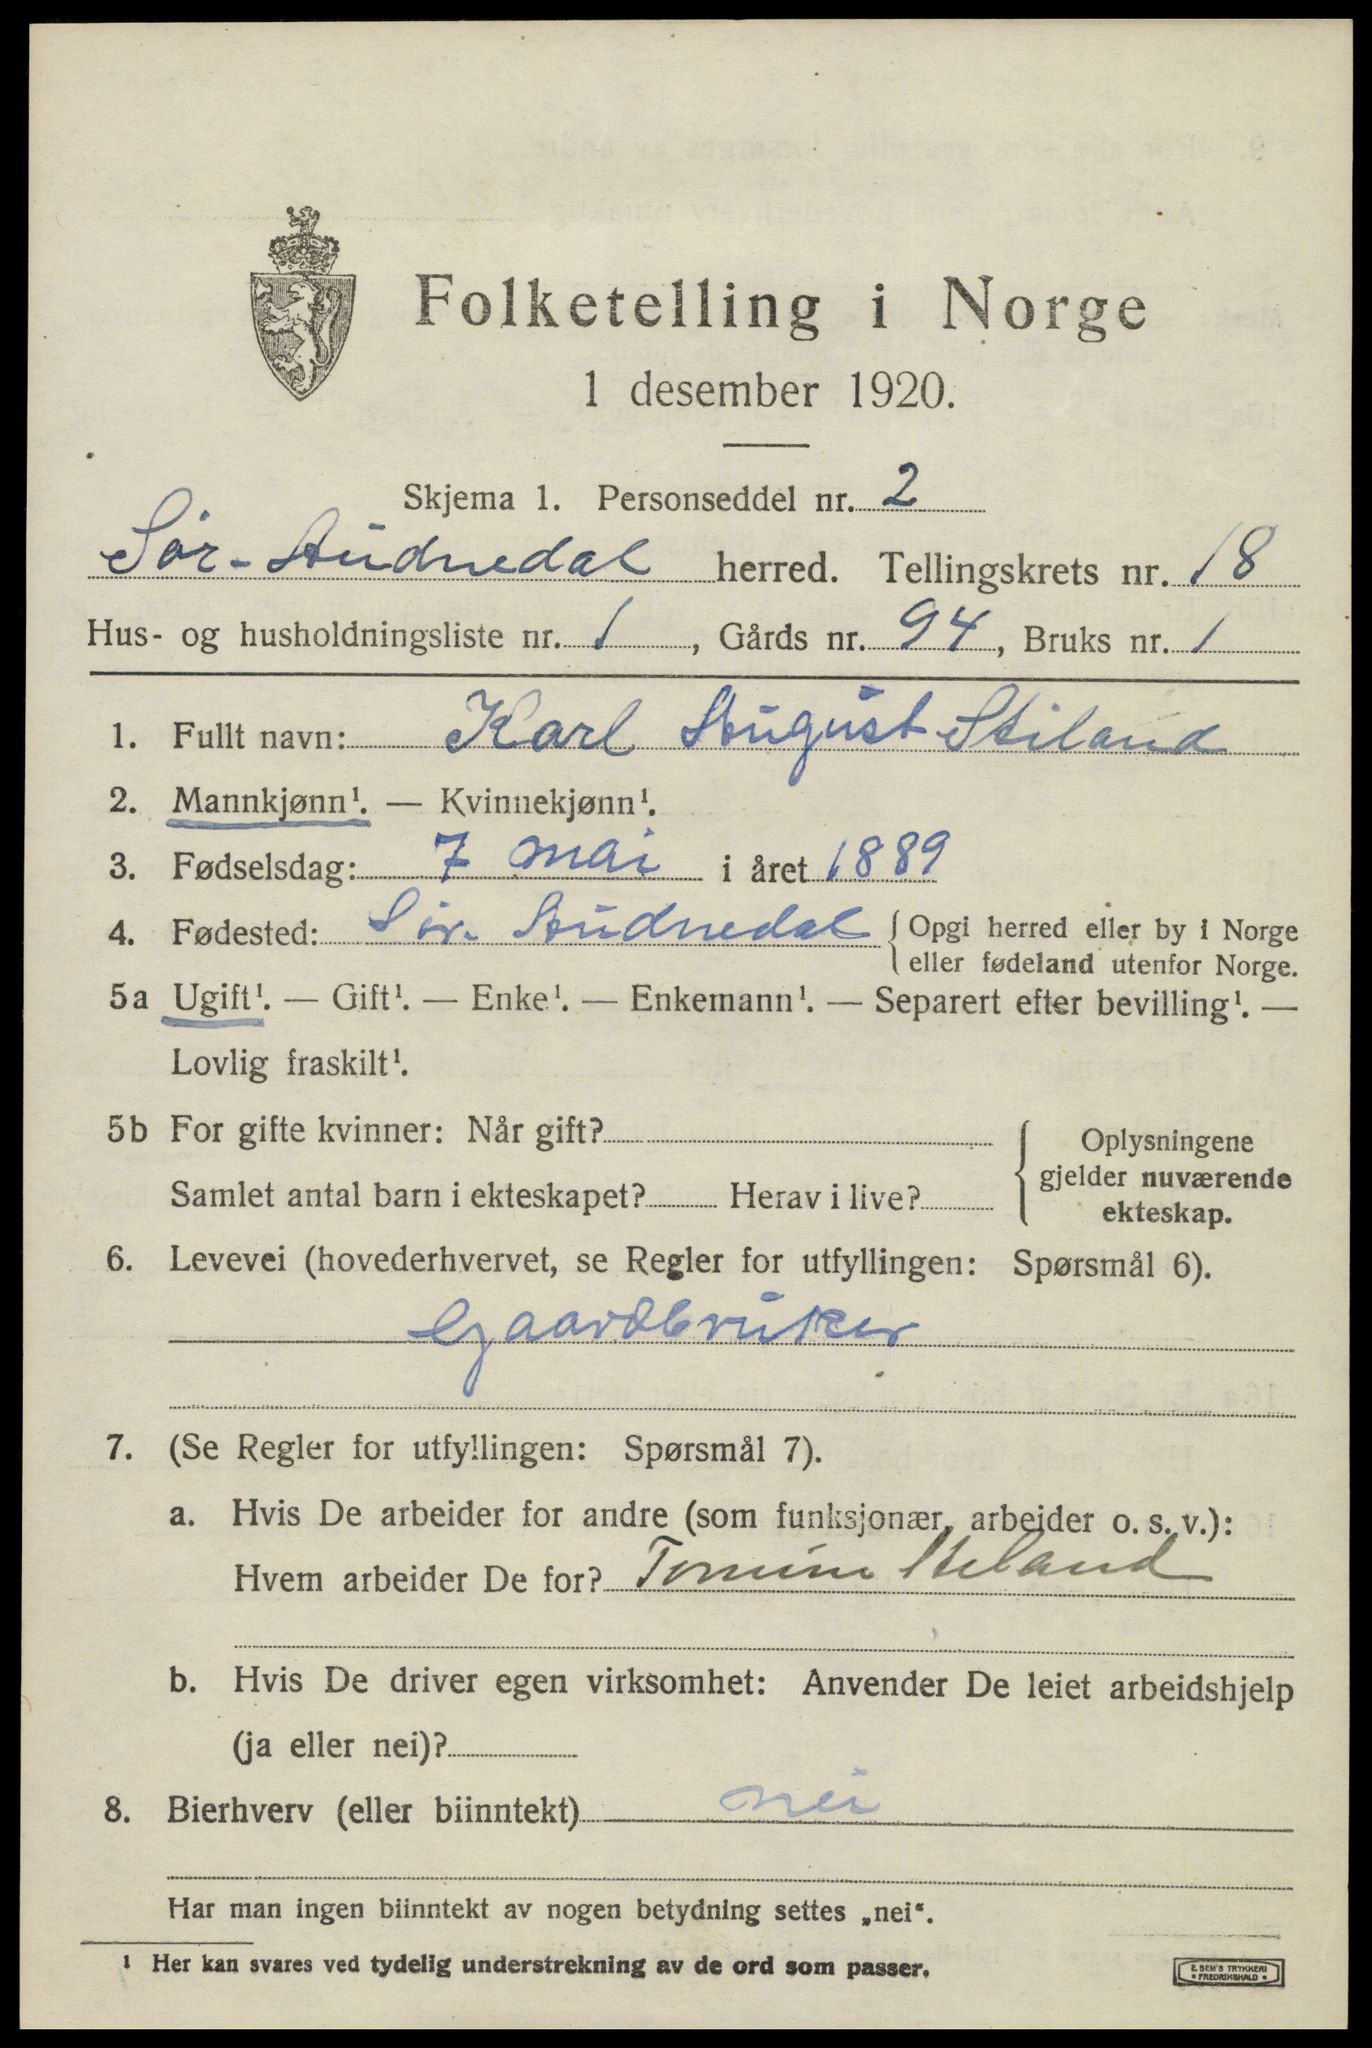 Folketelling i Norge
1 desember 1920.
Skjema 1. Personseddel nr. 2
Sör-Audnedal herred. Tellingskrets nr. 18
Hus- og husholdningsliste nr. 1, Gårds nr. 94, Bruks nr. 1
1. Fullt navn: Karl August Stiland
2. Mannkjønn¹. — Kvinnekjønn¹.
3. Fødselsdag: 7 mai i året 1889
4. Fødested: Sör-Audnedal { Opgi herred eller by i Norge
eller fødeland utenfor Norge.
5a Ugift¹. — Gift¹. — Enke¹. — Enkemann¹. — Separert efter bevilling¹. —
Lovlig fraskilt¹.
5b For gifte kvinner: Når gift?
Samlet antal barn i ekteskapet? Herav i live?
{ Oplysningene
gjelder nuværende
ekteskap.
6. Levevei (hovederhvervet, se Regler for utfyllingen: Spørsmål 6).
Gaardbruker
7. (Se Regler for utfyllingen: Spørsmål 7).
a. Hvis De arbeider for andre (som funksjonær, arbeider o. s. v.):
Hvem arbeider De for? Tomine Stiland
b. Hvis De driver egen virksomhet: Anvender De leiet arbeidshjelp
(ja eller nei)?
8. Bierhverv (eller biinntekt) nei
Har man ingen biinntekt av nogen betydning settes „nei“.
¹ Her kan svares ved tydelig understrekning av de ord som passer.
E. SEM'S TRYKKERI
• FREDRIKSHALD •